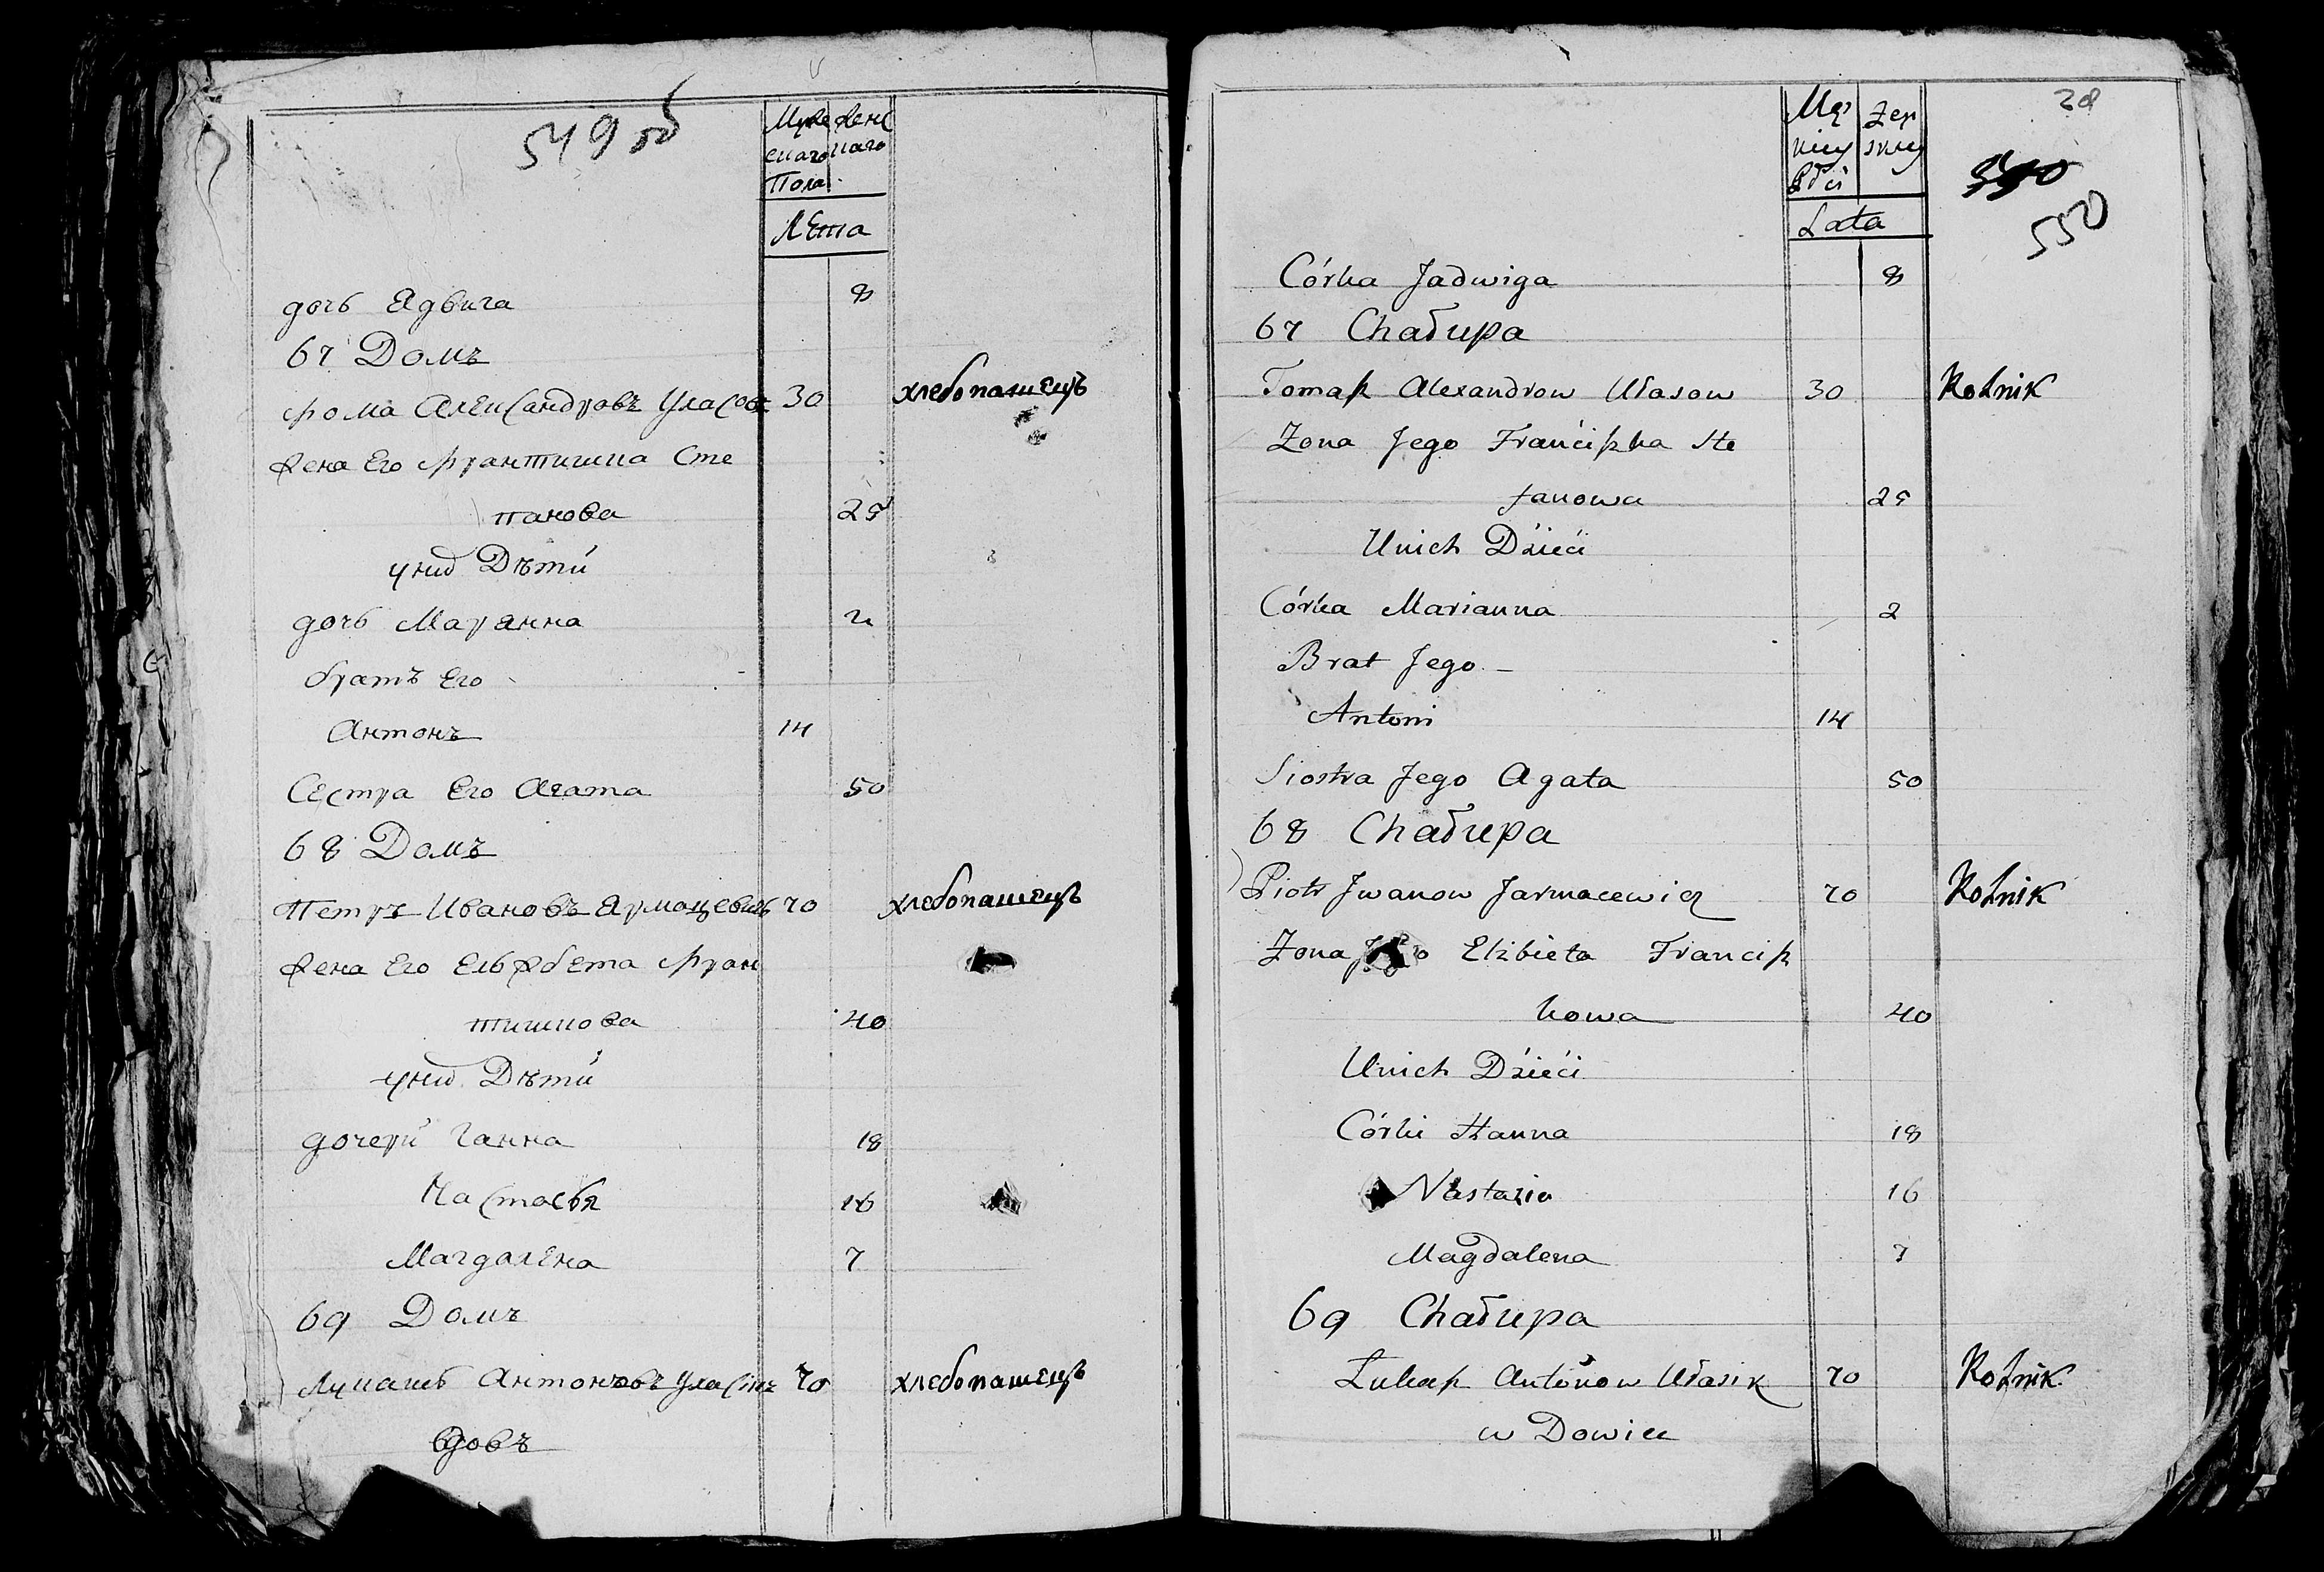 549 об
Мужес женс
скаго скаго
Пола
Лета
дочь Ядвига 8
67 Домъ
Фома Александровъ Уласовъ 30 хлебопашецъ
жена Его Франтишка Сте
панова 25
у них Дѣти
дочь Марянна 2
братъ Его
Антонъ 14
Сестра Его Агата 50
68 Домъ
Петръ Ивановъ Ярмацевичъ 70 хлебопашецъ
жена Его Ельжбета Фран
тишкова 40
у них Дѣти
дочери Ганна 18
Настасья 16
Магдалена 7
69 Домъ
Лукашъ Антоновъ Уласикъ 70 хлебопашецъ
вдовъ
28
550
Męz Zen
kiey skiey
Płci
Lata
Córka Jadwiga 8
67 Chałupa
Tomasz Alexandrow Ułasow 30 Rolnik
Zona Jego Franciszka Ste
fanowa 25
U nich Dzieci
Córka Marianna 2
Brat Jego
Antoni 14
Siostra Jego Agata 50
68 Chałupa
Piotr Jwanow Jarmacewicz 70 Rolnik
Zona Jego Elzbieta Francisz
kowa 40
U nich Dzieci
Córki Hanna 18
Nastazia 16
Magdalena 7
69 Chałupa
Łukasz Antonow Ułasik 70 Rolnik
w Dowiec